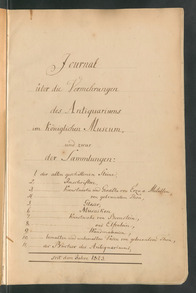 Journal
über die Vermehrungen
des Antiquariums
im Königlichen Museum,
und zwar
der Sammlungen:
1 der antiken geschnittenen Steine,
2 Inschriften,
3 Kunstwerke und Geräthe von Erz u. Metallen,
4 von gebrannter Erde,
5 Gläser,
6 Mosaiken
7 Kunstwerke von Bernstein,
8 aus Elfenbein,
9
10
11 der Bücher des Antiquariums,
seit dem Jahre 1823